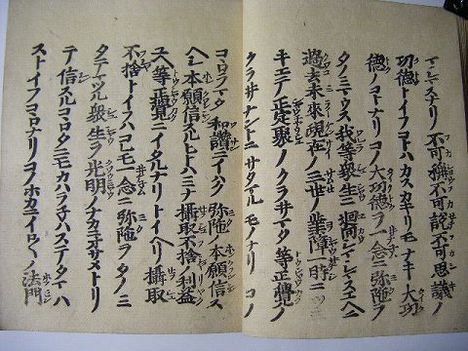 マシ〳〵スナリ不可稱不可說不可思議ノ
功德トイフコトハカスカキリモナキ大功
德ノコトナリコノ大功德ヲ一念ニ弥陀ヲ
タノミマウス我等衆生ニ廻向シマシマスユヘニ
過去未來現在ノ三世ノ業障一時ニツミ
キエテ正定聚ノクラヰマタ等正覺ノ
クラヰナントニサタマルモノナリコノ
コヽロヲマタ和讃ニイハク弥陀ノ本願信ス
ヘシ本願信スルヒトハミナ攝取不捨ノ利益
ユヘ等正覺ニイタルナリトイヘリ攝取
不捨トイフハコレモ一念ニ弥陀ヲタノミ
タテマツル衆生ヲ光明ノナカニオサメトリ
テ信スルコヽロタニモカハラネハステタマハ
ストイフコヽロナリコノホカニイロ〳〵ノ法門